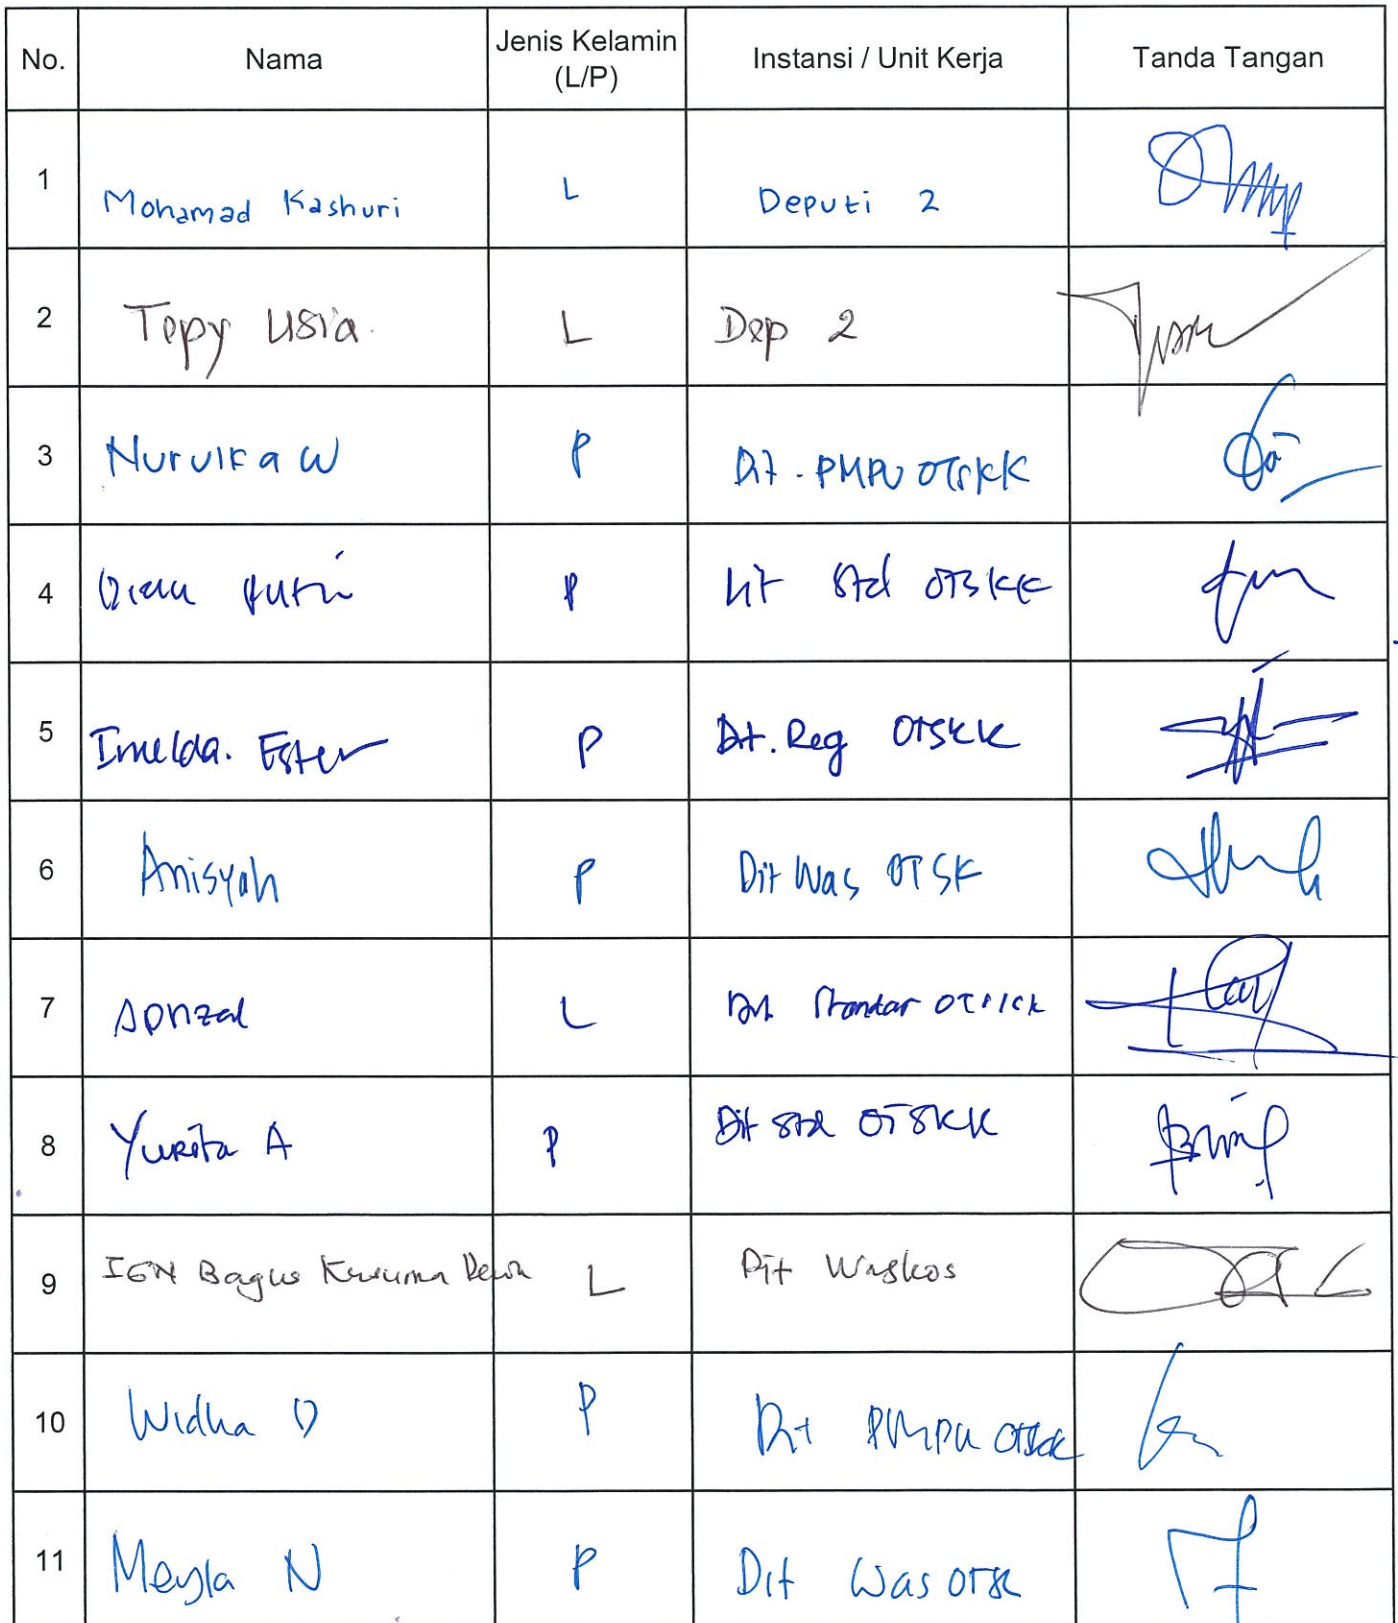 No. Nama Jenis Kelamin (L/P) Instansi / Unit Kerja Tanda Tangan
1 Mohamad Kashuri L Deputi 2
2 Tepy Usia. L Dep 2
3 Nurvika W P Dit. PMPU OTSKK
4 Putri P Dit Std OTSKK
5 Imelda. Ester P Dit. Reg OTSKK
6 Anisyah P Dit Was OTSK
7 Aprizal L Dit Standar OTSKK
8 Yurita A P Dit Std OTSKK
9 IGN Bagus Kusuma Dewa L Dit Waskos
10 Widha D P Dit PMPU OTSKK
11 Meyla N P Dit Was OTSK